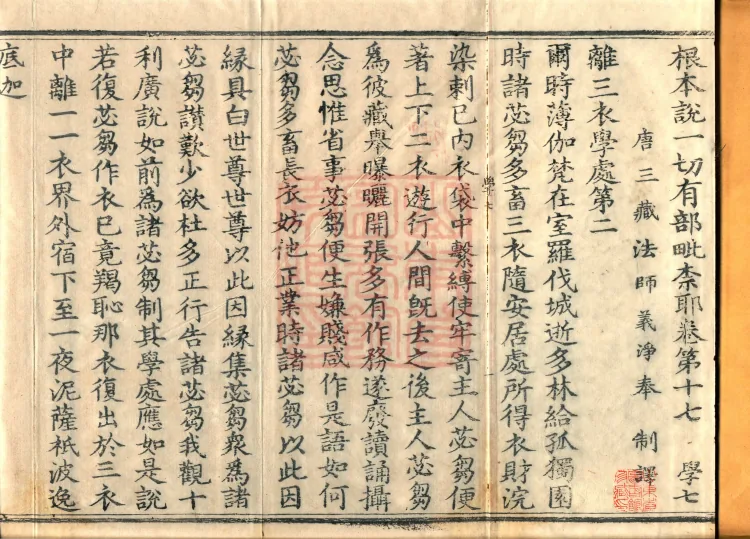 根本說一切有部毗柰耶卷第十七 學七
唐三藏法師義淨奉 制譯
離三衣學處第二
爾時薄伽梵在室羅伐城逝多林給孤獨園
時諸苾芻多畜三衣隨安居處所得衣財浣
染刺已內衣袋中繫縛使牢寄主人苾芻便
著上下二衣遊行人間旣去之後主人苾芻
爲彼藏舉曝曬開張多有作務遂廢讀誦攝
念思惟省事苾芻便生嫌賤咸作是語如何
苾芻多畜長衣妨他正業時諸苾芻以此因
緣具白世尊世尊以此因緣集苾芻衆爲諸
苾芻讚歎少欲杜多正行告諸苾芻我觀十
利廣說如前爲諸苾芻制其學處應如是說
若復苾芻作衣已竟羯恥那衣復出於三衣
中離一一衣界外宿下至一夜泥薩祇波逸
底迦